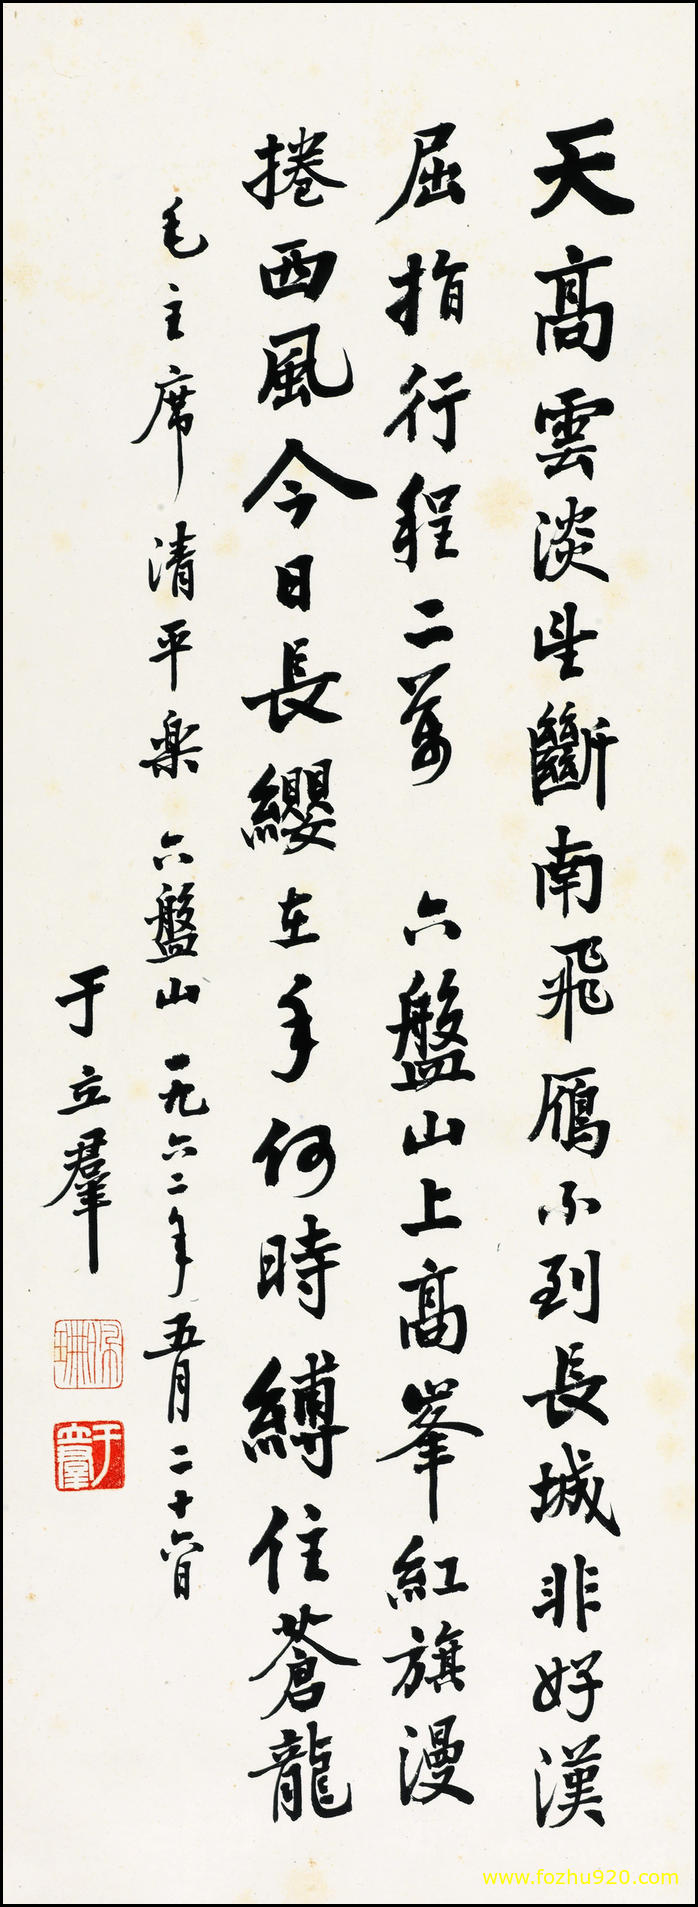 天高雲淡望斷南飛鴈不到長城非好漢
屈指行程二萬 六盤山上高峯紅旗漫
捲西風今日長纓在手何時縛住蒼龍
毛主席清平楽 六盤山 一九六二年五月二十六日
于立羣
于立羣
www.fozhu920.com